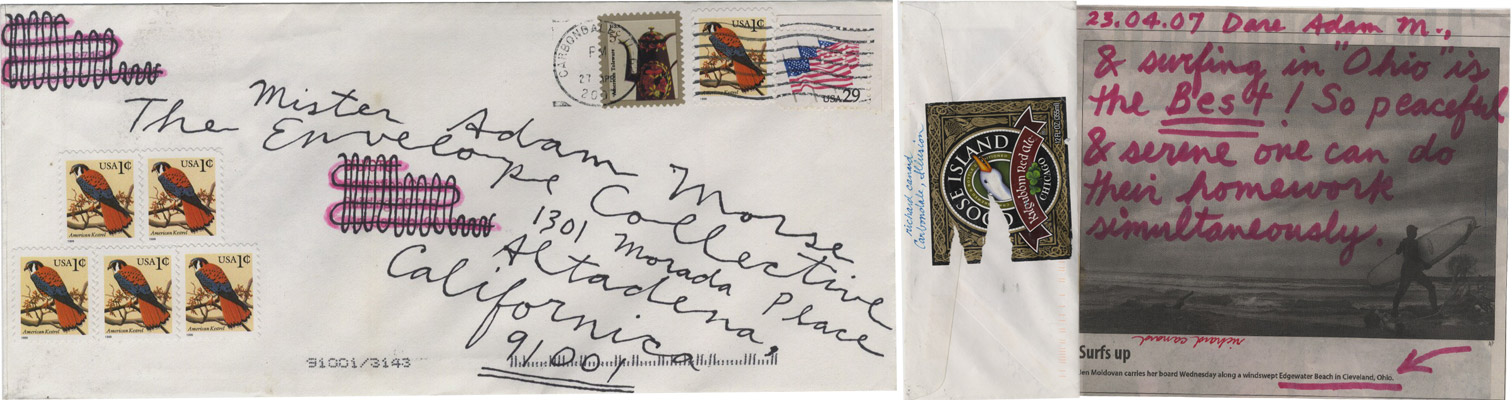 CARBONDALE
PM
27
USA 1¢
USA 29
Mister Adam Morse
The Envelope Collective
1301 Morada Place
Altadena,
California
91001
USA 1¢
USA 1¢
American Kestrel
American Kestrel
USA 1¢
USA 1¢
USA 1¢
American Kestrel
American Kestrel
American Kestrel
91001/3143
richard canard
Carbondale, Illusion
GOOSE ISLAND
Kilgubbin Red Ale
CHICAGO
12 FL OZ
23.04.07 Dare Adam M.,
& surfing in "Ohio" is
the Best! So peaceful
& serene one can do
their homework
simultaneously.
richard canard
Surfs up
Jen Moldovan carries her board Wednesday along a windswept Edgewater Beach in Cleveland, Ohio.